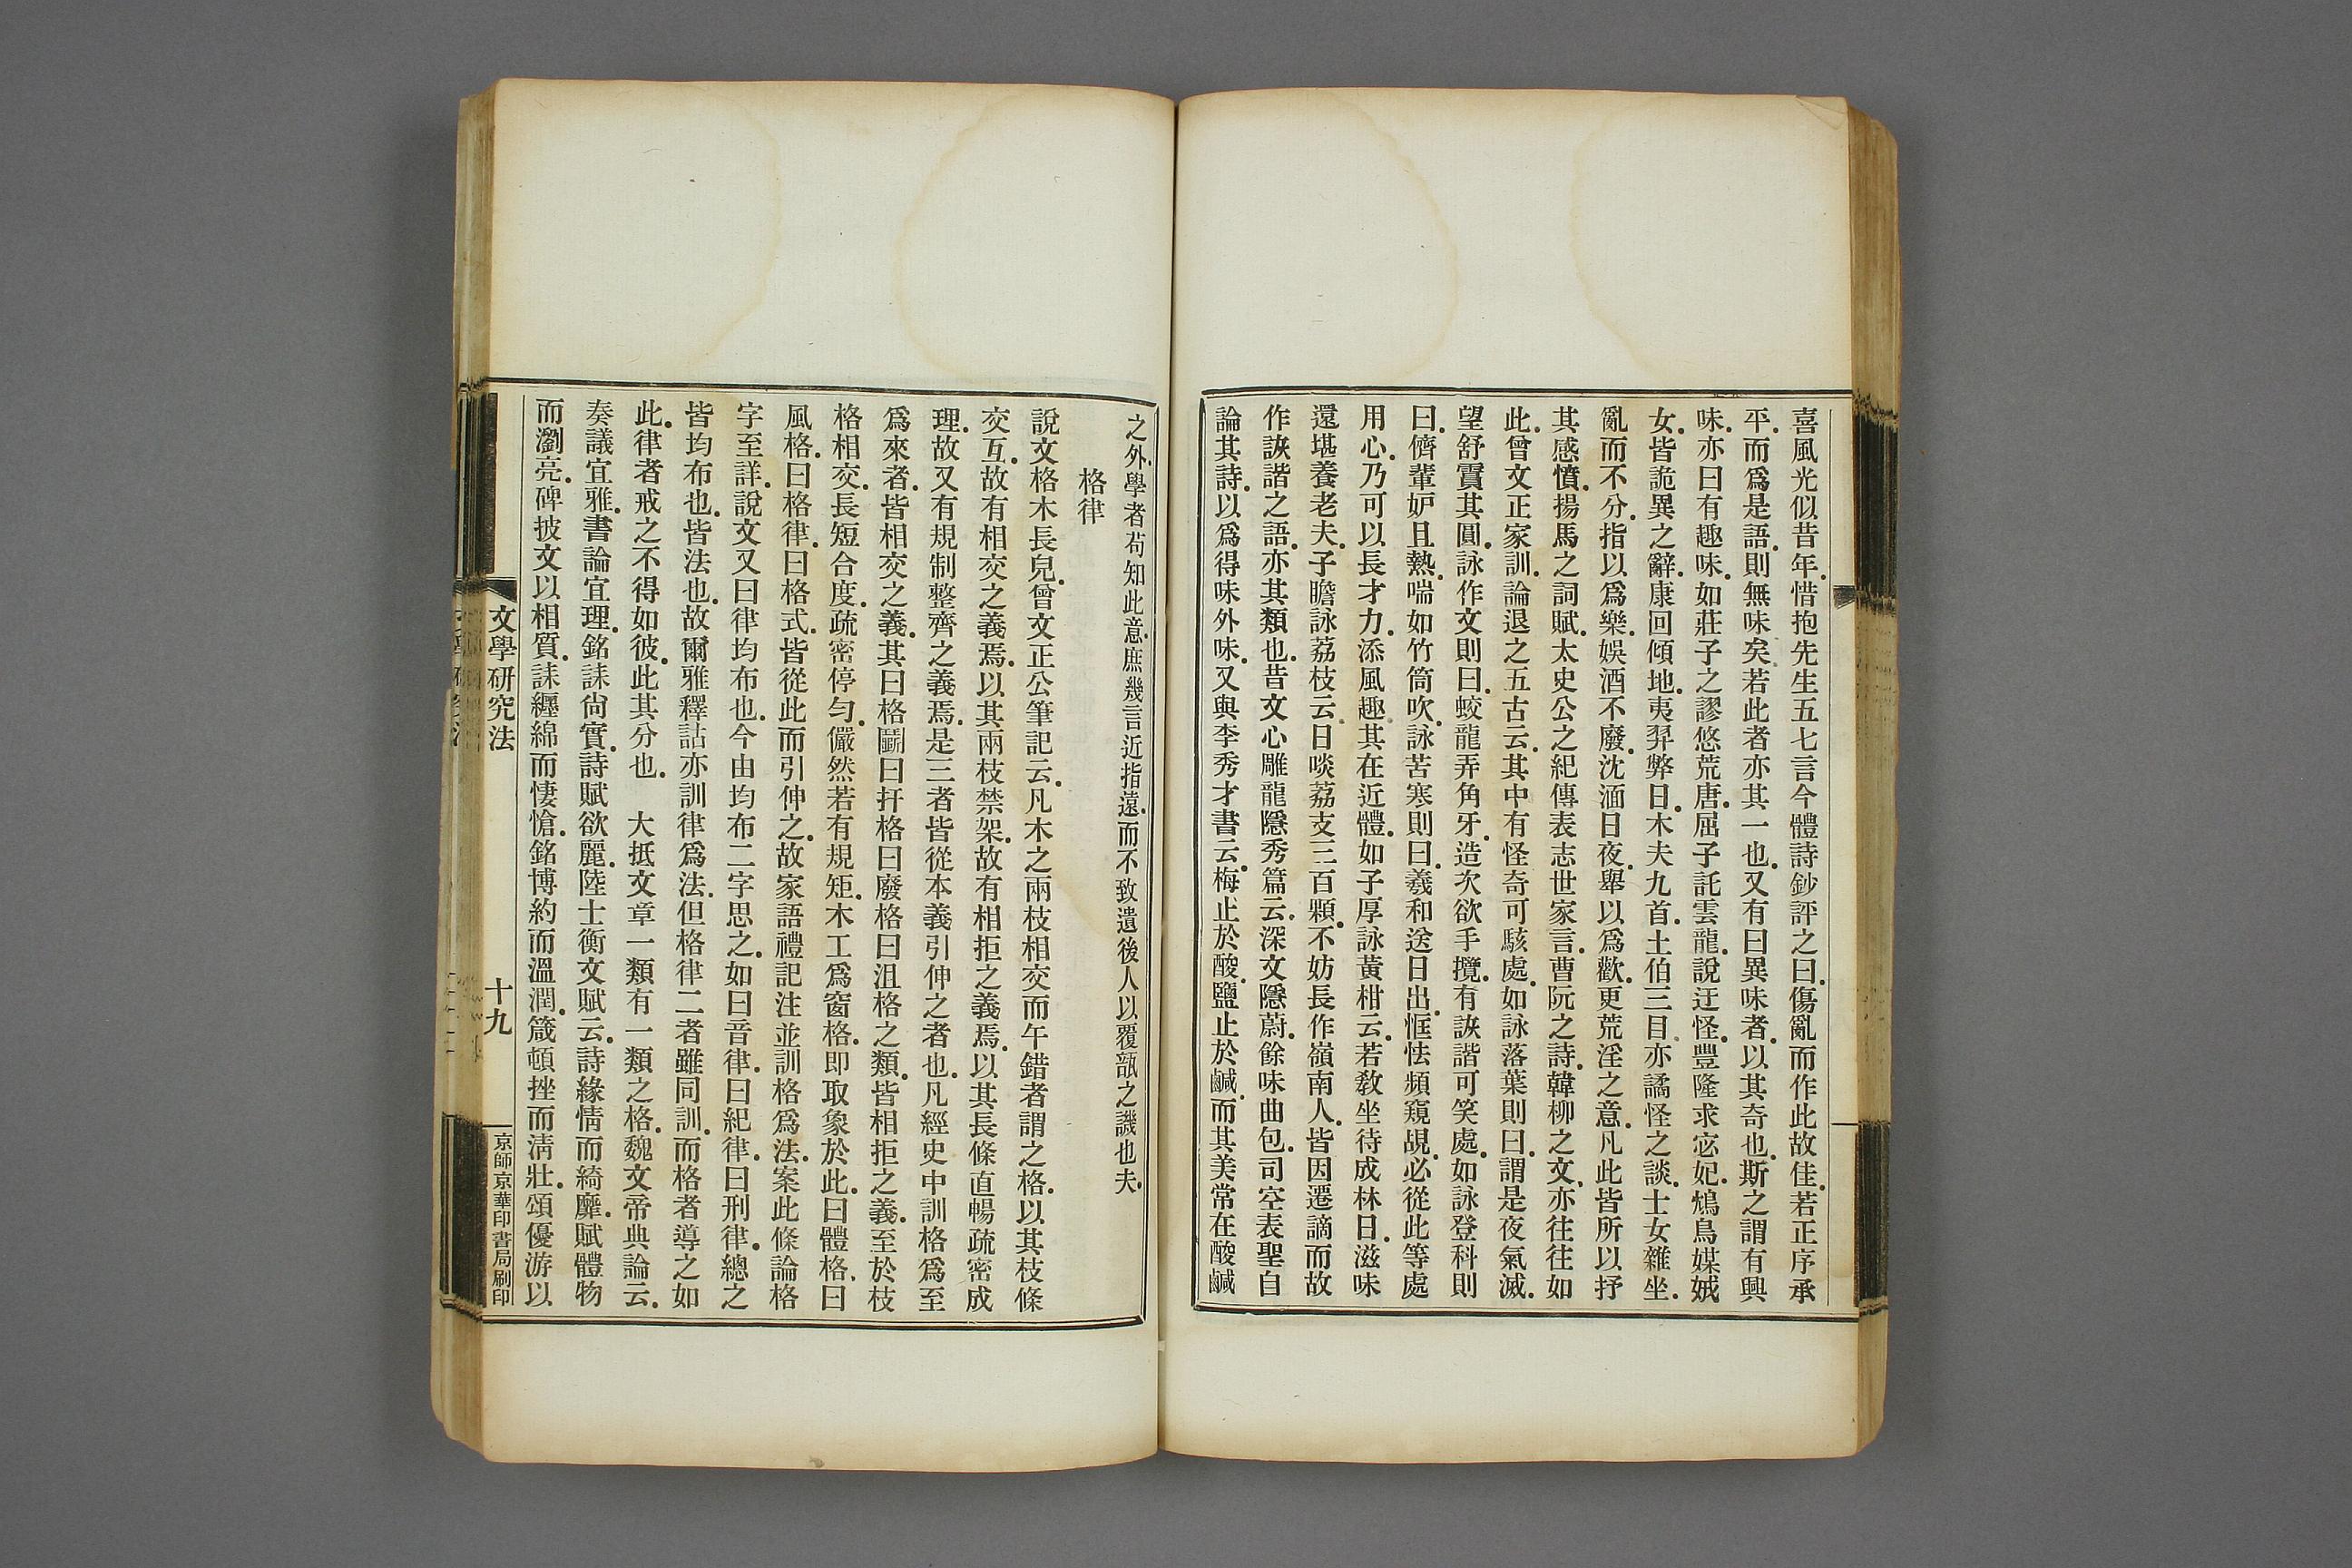 喜風光似昔年．惜抱先生五七言今體詩鈔評之曰．傷亂而作此故佳．若正序承
平．而爲是語．則無味矣．若此者亦其一也．又有曰異味者．以其奇也．斯之謂有興
味．亦曰有趣味．如莊子之謬悠荒唐．屈子託雲龍．說迂怪．豐隆求宓妃．鴆鳥媒娀
女．皆詭異之辭．康回傾地．夷羿彃日．木夫九首．土伯三目．亦譎怪之談．士女雜坐．
亂而不分．指以爲樂．娛酒不廢．沈湎日夜．舉以爲歡．更荒淫之意．凡此皆所以抒
其感憤．揚馬之詞賦．太史公之紀傳表志世家言．曹阮之詩．韓柳之文．亦往往如
此．曾文正家訓．論退之五古云．其中有怪奇可駭處．如詠落葉則曰．謂是夜氣滅．
望舒霣其圓．詠作文則曰．蛟龍弄角牙．造次欲手攬．有詼諧可笑處．如詠登科則
曰．儕輩妒且熱．喘如竹筒吹．詠苦寒則曰．羲和送日出．恇怯頻窺覘．必從此等處
用心．乃可以長才力．添風趣．其在近體．如子厚詠黃柑云．若敎坐待成林日．滋味
還堪養老夫．子瞻詠荔枝云．日啖荔支三百顆．不妨長作嶺南人．皆因遷謫而故
作詼諧之語．亦其類也．昔文心雕龍隱秀篇云．深文隱蔚．餘味曲包．司空表聖自
論其詩．以爲得味外味．又與李秀才書云．梅止於酸．鹽止於鹹．而其美常在酸鹹
之外．學者苟知此意．庶幾言近指遠．而不致遺後人以覆瓿之譏也夫．
格律
說文格木長皃．曾文正公筆記云．凡木之兩枝相交而午錯者謂之格．以其枝條
交互．故有相交之義焉．以其兩枝禁架．故有相拒之義焉．以其長條直暢疏密成
理．故又有規制整齊之義焉．是三者皆從本義引伸之者也．凡經史中訓格爲至
爲來者．皆相交之義．其曰格鬭曰扞格曰廢格曰沮格之類．皆相拒之義．至於枝
格相交．長短合度．疏密停勻．儼然若有規矩．木工爲窗格．即取象於此．曰體格．曰
風格．曰格律．曰格式．皆從此而引伸之．故家語禮記注並訓格爲法．案此條論格
字至詳．說文又曰律均布也．今由均布二字思之．如曰音律．曰紀律．曰刑律．總之
皆均布也．皆法也．故爾雅釋詁亦訓律爲法．但格律二者雖同訓．而格者導之如
此．律者戒之不得如彼．此其分也．　大抵文章一類有一類之格．魏文帝典論云．
奏議宜雅．書論宜理．銘誄尙實．詩賦欲麗．陸士衡文賦云．詩緣情而綺靡．賦體物
而瀏亮．碑披文以相質．誄纏綿而悽愴．銘博約而溫潤．箴頓挫而淸壯．頌優游以
文學研究法
十九
京師京華印書局刷印